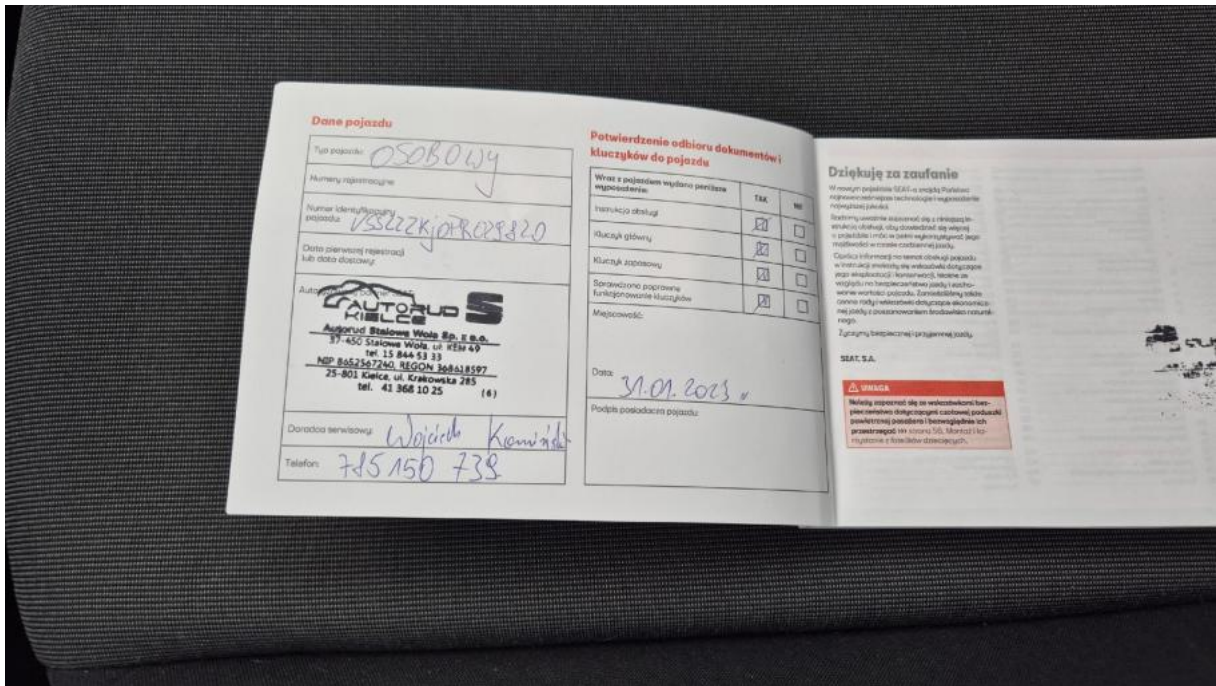 Dane pojazdu
Typ pojazdu: OSOBOWY
Numery rejestracyjne
Numer identyfikacyjny
pojazdu:
Data pierwszej rejestracji
lub data dostawy:
AUTORUD S
KIELCE
Autorud Stalowa Wola Sp. z o.o.
37-450 Stalowa Wola, ul. KEN 49
tel. 15 844 53 33
NIP 8652567240, REGON 368618597
25-801 Kielce, ul. Krakowska 285
tel. 41 368 10 25 (6)
Doradca serwisowy: Wojciech Kamiński
Telefon: 785 150 739
Potwierdzenie odbioru dokumentów i
kluczyków do pojazdu
Wraz z pojazdem wydano poniższe
wyposażenie: TAK NIE
Instrukcja obsługi
Kluczyk główny
Kluczyk zapasowy
Sprawdzono poprawne
funkcjonowanie kluczyków
Miejscowość:
Data: 31.01.2023 r
Podpis posiadacza pojazdu:
Dziękuję za zaufanie
W nowym pojeździe SEAT-a znajdą Państwo
najnowocześniejsze technologie i wyposażenie
najwyższej jakości.
Radzimy uważnie zapoznać się z niniejszą in-
strukcją obsługi, aby dowiedzieć się więcej
o pojeździe i móc w pełni wykorzystywać jego
możliwości w czasie codziennej jazdy.
Oprócz informacji na temat obsługi pojazdu
w instrukcji znalazły się wskazówki dotyczące
jego eksploatacji i konserwacji, istotne ze
względu na bezpieczeństwo jazdy i zacho-
wanie wartości pojazdu. Zamieściliśmy także
cenne rady i wskazówki dotyczące ekonomicz-
nej jazdy z poszanowaniem środowiska natural-
nego.
Życzymy bezpiecznej i przyjemnej jazdy.
SEAT, S.A.
UWAGA
Należy zapoznać się ze wskazówkami bez-
pieczeństwa dotyczącymi czołowej poduszki
powietrznej pasażera i bezwzględnie ich
przestrzegać ››› strona 56, Montaż i ko-
rzystanie z fotelików dziecięcych.